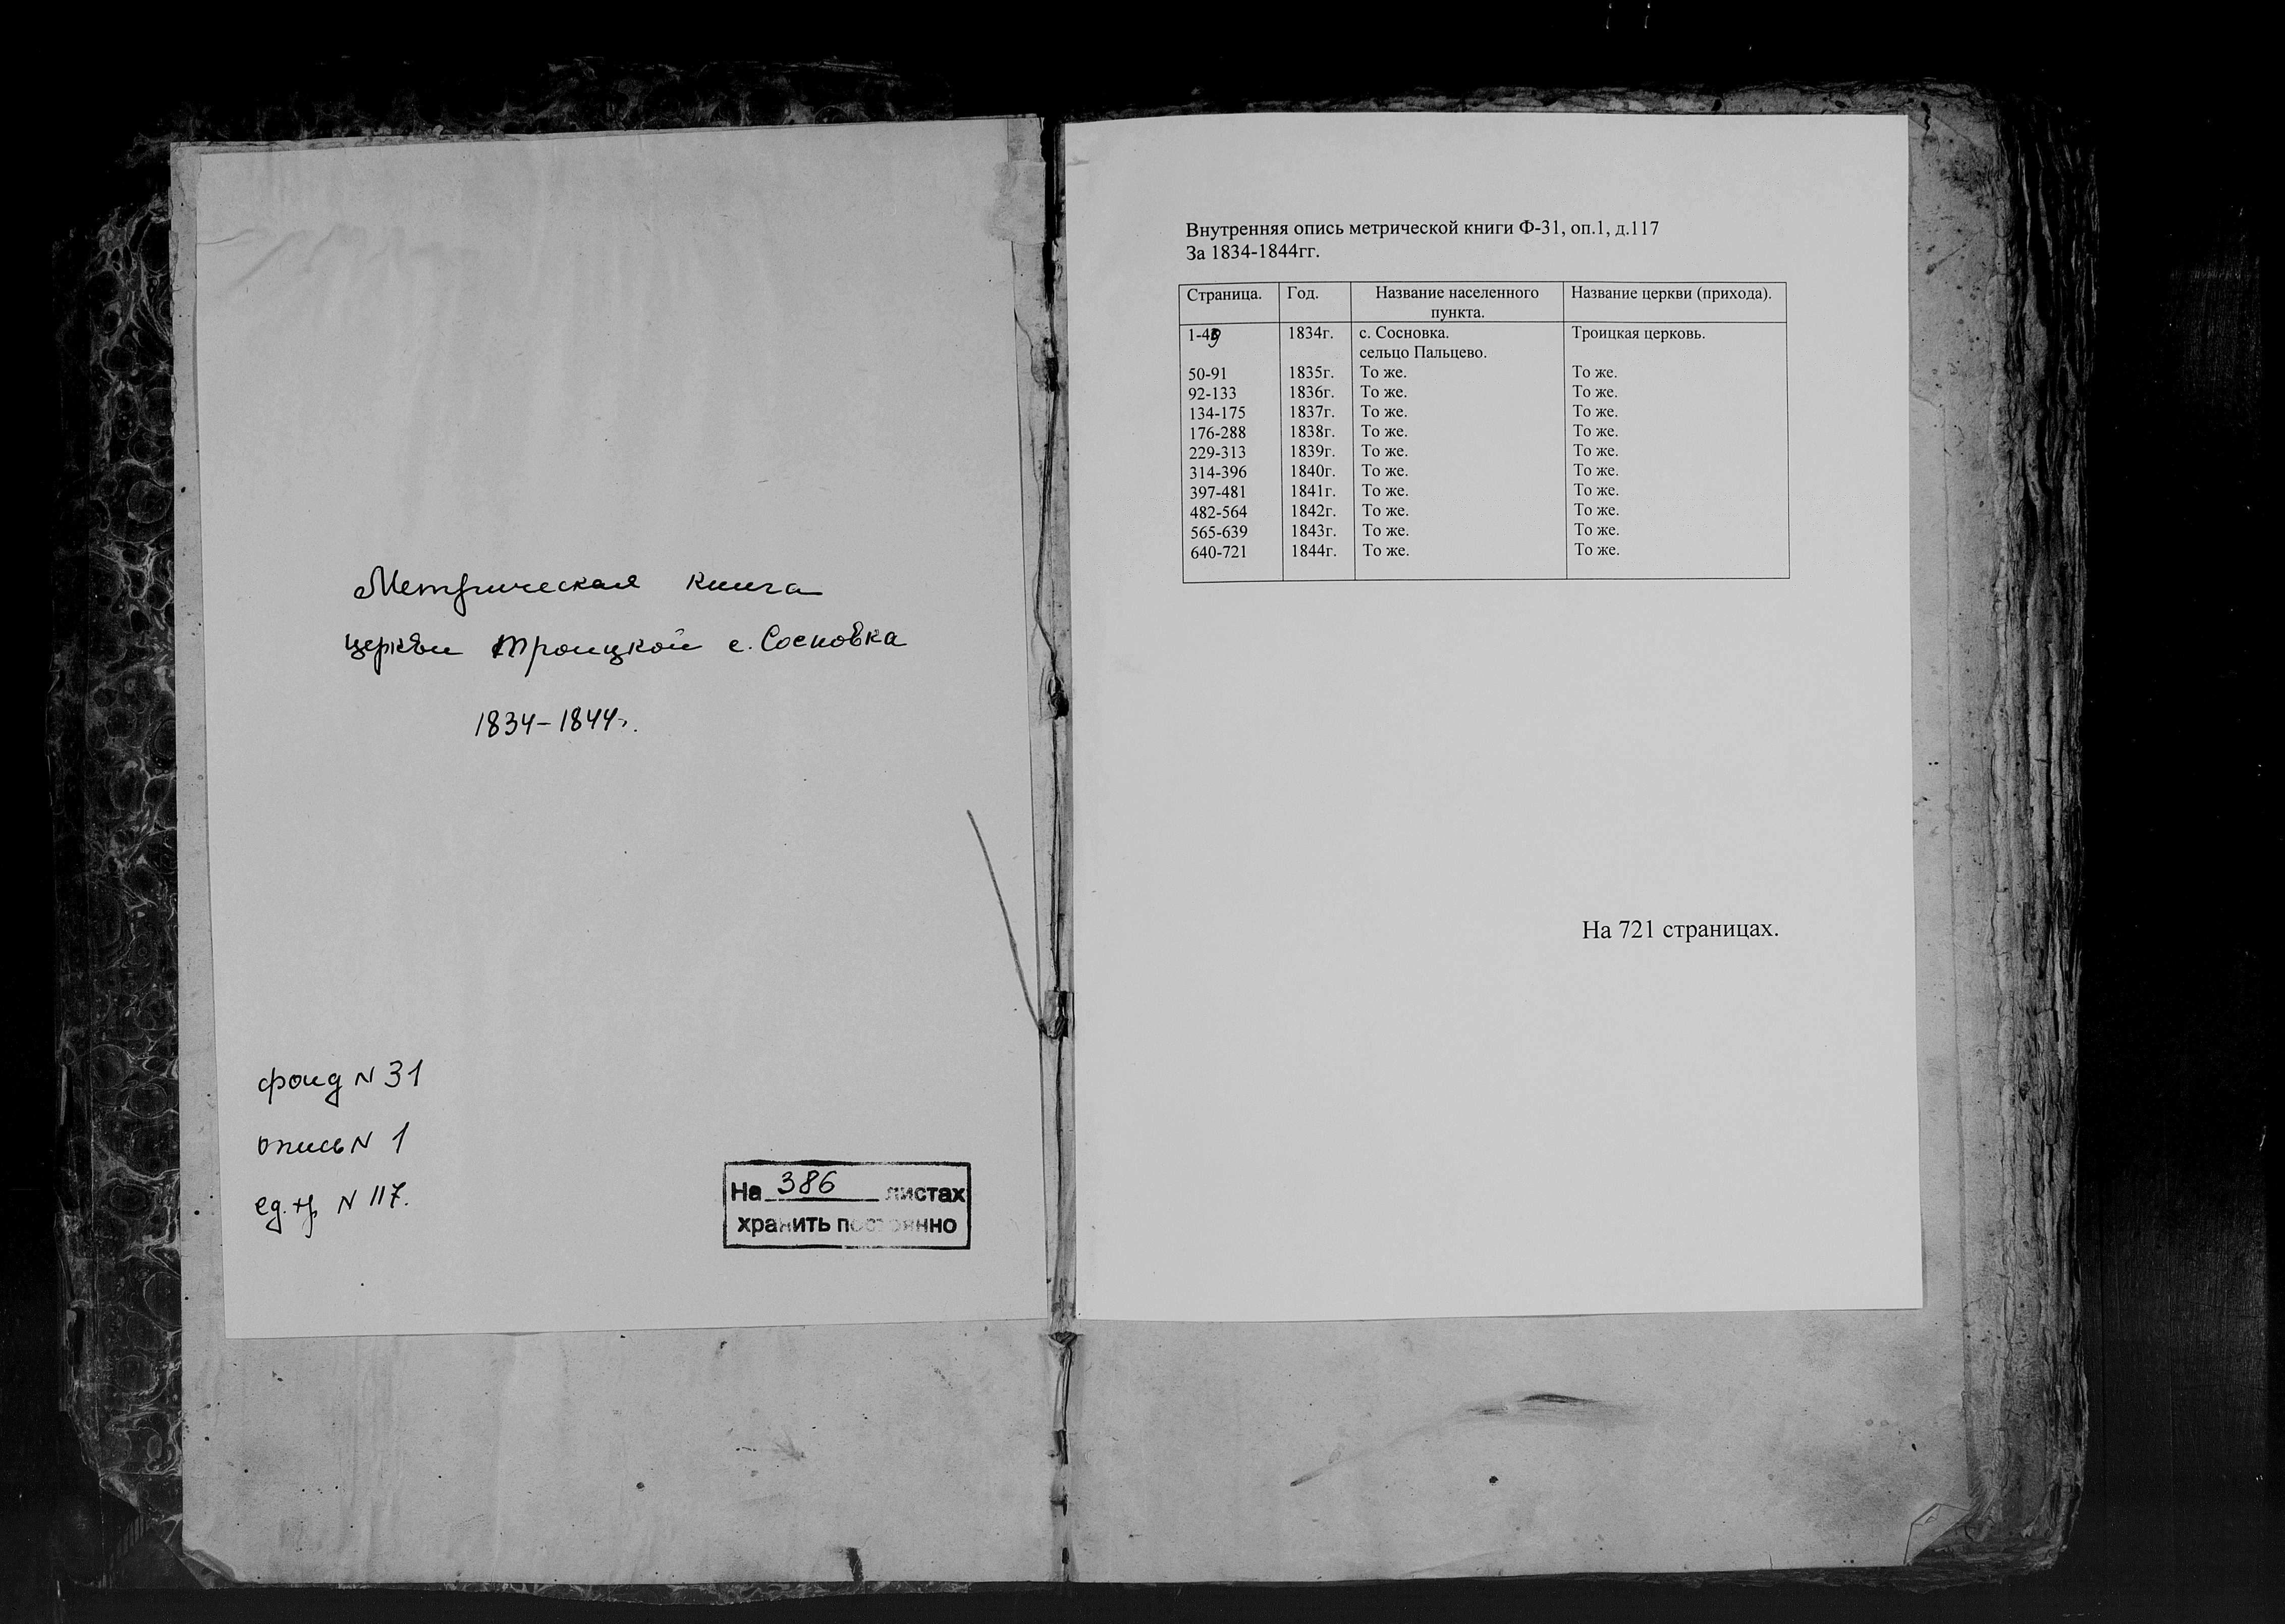 Метрическая книга
церкви Троицкой с. Сосновка
1834-1844г.
фонд N 31
опись N 1
ед. хр N 117.
На 386 листах
хранить постоянно
Внутренняя опись метрической книги Ф-31, оп.1, д.117
За 1834-1844гг.
Страница. Год. Название населенного пункта. Название церкви (прихода).
1-49 1834г. с. Сосновка. Троицкая церковь.
сельцо Пальцево.
50-91 1835г. То же. То же.
92-133 1836г. То же. То же.
134-175 1837г. То же. То же.
176-288 1838г. То же. То же.
229-313 1839г. То же. То же.
314-396 1840г. То же. То же.
397-481 1841г. То же. То же.
482-564 1842г. То же. То же.
565-639 1843г. То же. То же.
640-721 1844г. То же. То же.
На 721 страницах.